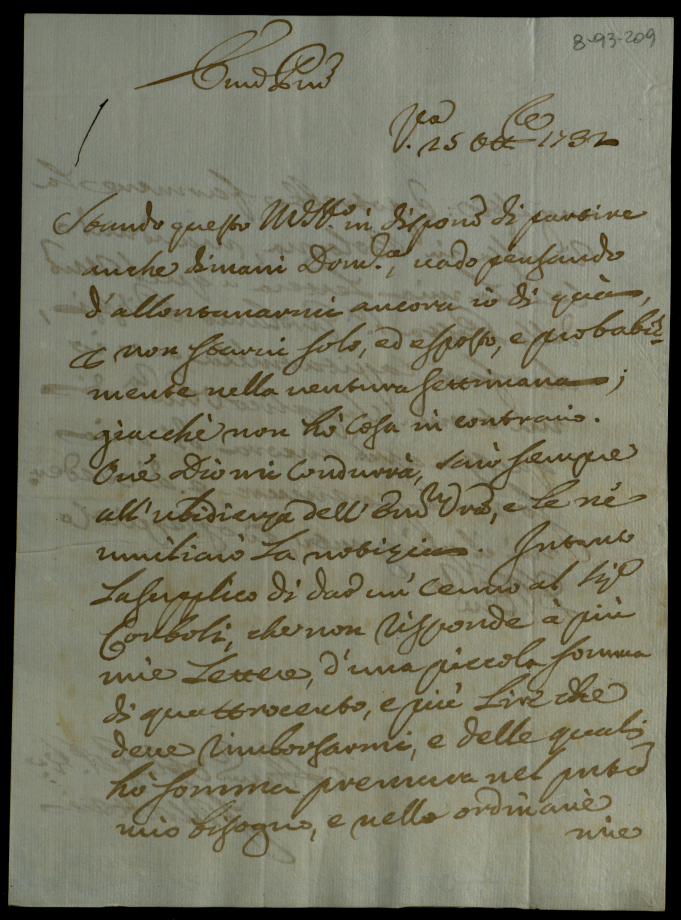 8-93-209
Em̃o Pnr̃e
V.ª 25 Ott.re 1732
Stando questo in dispon.e di partire
anche dimani Dom.ca, vado pensando
d'allontanarmi ancora io di quà,
e non starvi solo, ed esposto, e probabil-
mente nella ventura settimana;
giacchè non hò Cosa in contrario.
Ove Dio mi Condurrà, sarò sempre
all'ubidienza dell' Em.za Vr̃a, e le nè
umiliarò La notizia. Intanto
La supplico di dar un Cenno al Sig.r
Corboli, che non risponde à più
mie Lettere, d'una piccola somma
di quattrocento, e più Lire che
deve rimborsarmi, e delle quali
hò somma premura nel pnt̃e
mio bisogno, e nelle ordinarie
mie